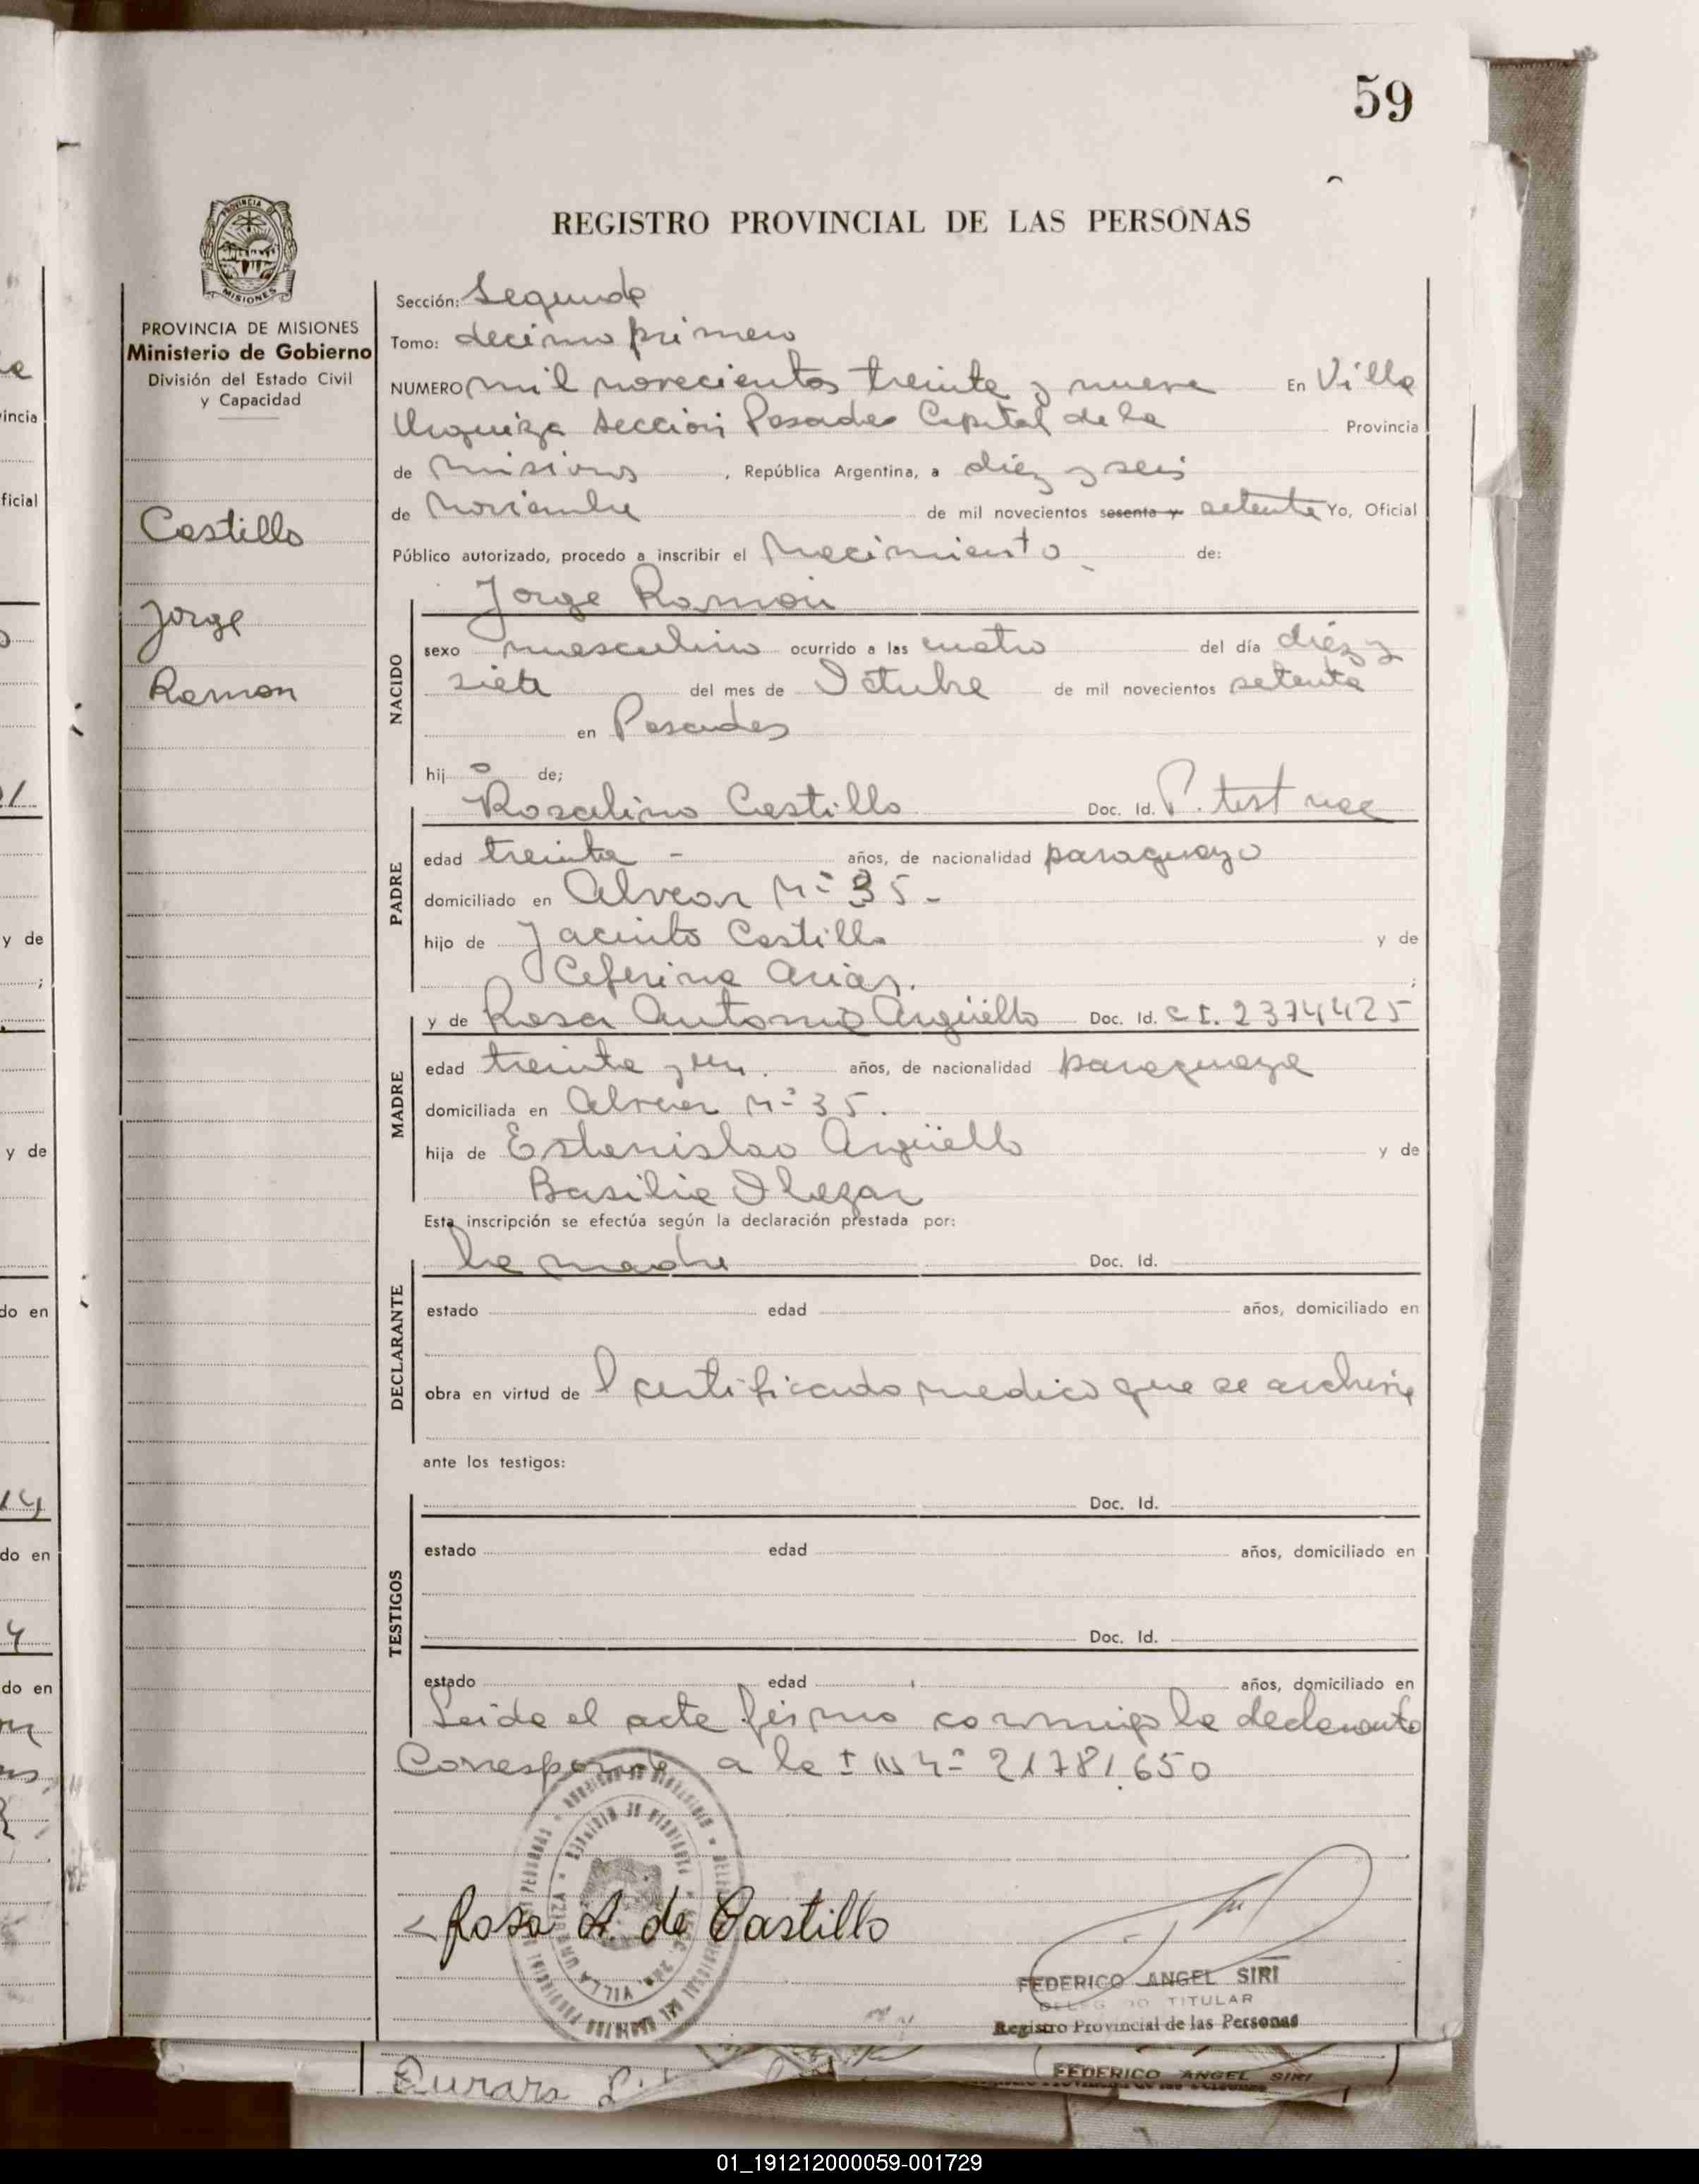 59
REGISTRO PROVINCIAL DE LAS PERSONAS
PROVINCIA DE MISIONES
Ministerio de Gobierno
División del Estado Civil
y Capacidad
Castillo
Jorge
Ramon
Sección: Segunda
Tomo: decimo primero
NUMERO mil novecientos treinta y nueve En Villa
Urquiza Sección Posadas Capital de la Provincia
de Misiones , República Argentina, a diez y seis
de Noviembre de mil novecientos sesenta y setenta Yo, Oficial
Público autorizado, procedo a inscribir el Nacimiento de:
Jorge Ramón
NACIDO
sexo masculino ocurrido a las cuatro del día diez y
siete del mes de Octubre de mil novecientos setenta
en Posadas
hij o de;
PADRE
Rosalino Castillo Doc. Id. P. test nac
edad treinta - años, de nacionalidad paraguayo
domiciliado en Alvear Nº 35 -
hijo de Jacinto Castillo y de
Ceferina Arias. ;
MADRE
y de Rosa Antonia Argüello Doc. Id. C I. 2374425
edad treinta y un. años, de nacionalidad paraguaya
domiciliada en Alvear Nº 35.
hija de Estanislao Argüello y de
Basilia
Esta inscripción se efectúa según la declaración prestada por:
DECLARANTE
la madre Doc. Id.
estado edad años, domiciliado en
obra en virtud de l certificado medico que se archiva
ante los testigos:
TESTIGOS
Doc. Id.
estado edad años, domiciliado en
Doc. Id.
estado edad años, domiciliado en
Leida el acta firma conmigo la declarante
Corresponde a la Nº 21781.650
Rosa A. de Castillo
FEDERICO ANGEL SIRI
TITULAR
Registro Provincial de las Personas
FEDERICO ANGEL SIRI
01_191212000059-001729